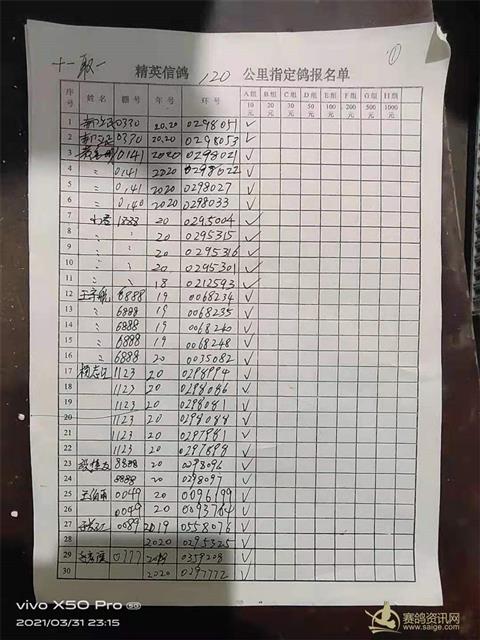 精英信鸽 120 公里指定鸽报名单 ①
序号 姓名 棚号 年号 环号 A组 10元 B组 20元 C组 30元 D组 50元 E组 100元 F组 200元 G组 500元 H组 1000元
1 0330 2020 0298051 ✓
2 0330 2020 0298053 ✓
3 0141 2020 0298021 ✓
4 〃 0141 2020 0298022 ✓
5 〃 0141 2020 0298027 ✓
6 〃 0140 2020 0298033 ✓
7 1888 20 0295004 ✓
8 〃 〃 20 0295315 ✓
9 〃 〃 20 0295316 ✓
10 〃 〃 20 0295301 ✓
11 〃 〃 18 0212593 ✓
12 6888 19 0068234 ✓
13 〃 6888 19 0068235 ✓
14 〃 6888 19 0068240 ✓
15 〃 6888 19 0068248 ✓
16 〃 6888 20 0035082 ✓
17 1123 20 0298994 ✓
18 1123 20 0298086 ✓
19 1123 20 0298081 ✓
20 1123 20 0298088 ✓
21 1123 20 0297981 ✓
22 1123 20 ✓
23 8888 20 0298096 ✓
24 8888 20 0298097 ✓
25 0049 20 0096199 ✓
26 0049 20 0093764 ✓
27 0089 2019 0558076 ✓
28 2020 0295325 ✓
29 0777 0359208 ✓
30 2020 0297772 ✓
vivo X50 Pro 5G
2021/03/31 23:15
赛鸽资讯网
www.saige.com